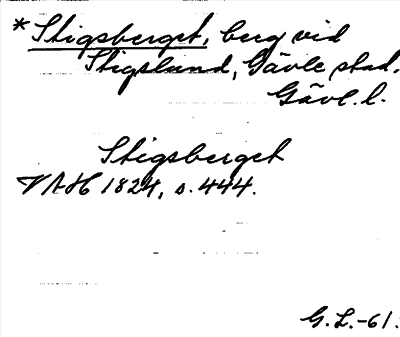 *Stigsberget, berg vid
Stigslund, Gävle stad.
Gävl. l.
Stigsberget
VAH 1824, s. 444.
G.L.-61.